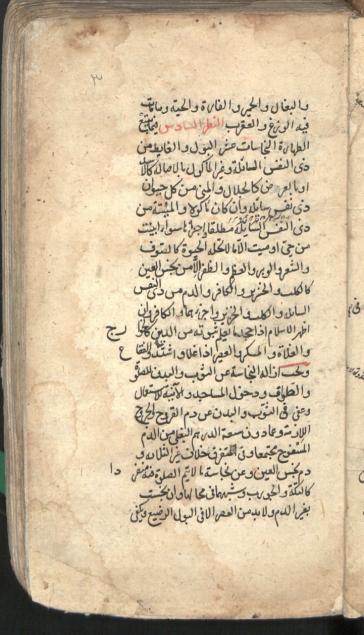 ٣
والبغال والحمير والفارة والحية وما مات
فيه الوزغ والعقرب النظر السادس فيما يتبع
الطهارة النجاسات عشر البول والغايط من
ذى النفس السائلة وغير الماكول بالاصالة كالاسد
او بالعرض كالجلال والمنى من كل حيوان
ذى نفس سائلة وان كان ماكولا والميتة من
ذى النفس السائلة مطلقا واجزاءها سواء ابينت
من حى او ميت الا ما لا تحله الحيوة كالصوف
والشعر والوبر والعظم والظفر الا من نجس العين
كالكلب والخنزير والكافر والدم من ذى النفس
السائلة والكلب والخنزير واجزاءهما والكافر وان
اظهر الاسلام اذا جحد ما يعلم ثبوته من الدين كالخوارج
والغلاة والمسكر والعصير اذا غلا واشتد والفقاع
ويجب ازالة النجاسة عن الثوب والبدن للصلوة
والطواف ودخول المساجد والآنية للاستعمال
وعفى فى الثوب والبدن عن دم القروح والجروح
اللازمة وعما دون سعة الدرهم البغلى من الدم
المسفوح مجتمعا وفى المتفرق خلاف غير الثلاثة ودم
نجس العين وعن نجاسة ما لا تتم الصلوة فيه منفردا
كالتكة والجورب وشبههما فى محالها وان نجست
بغير الدم ولابد من العصر الا فى البول الرضيع ويكفى